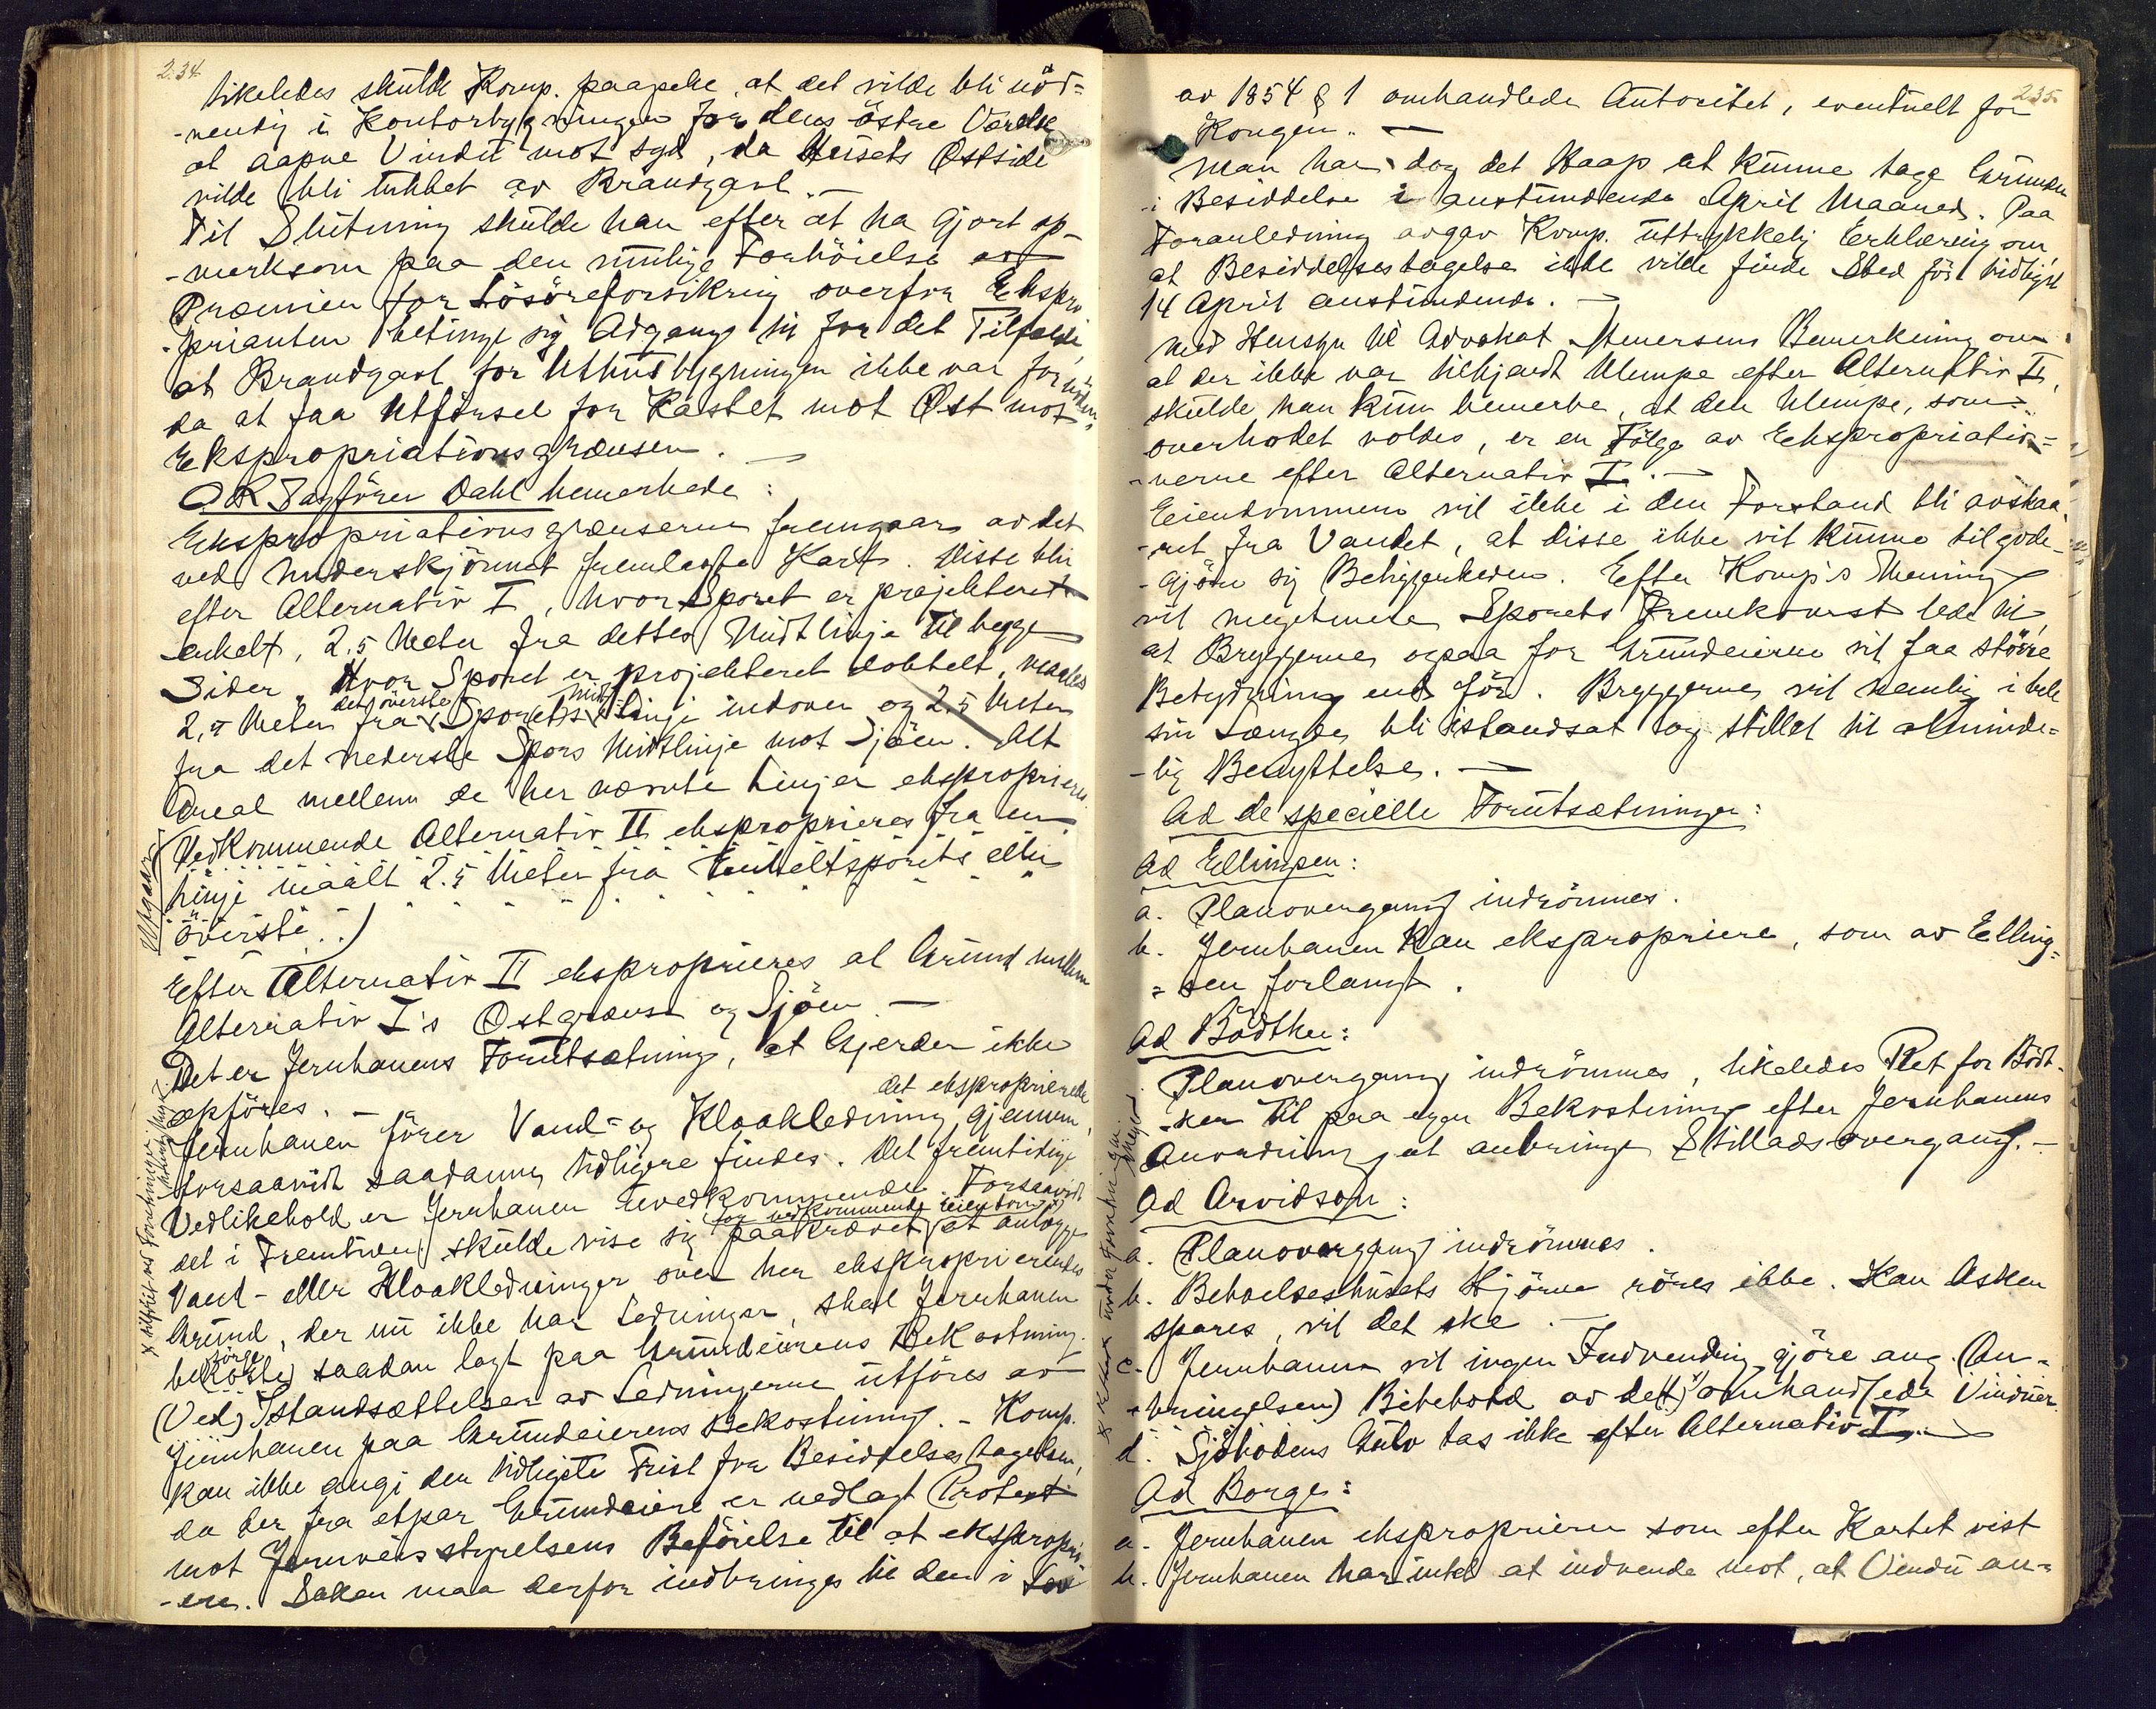 234
Likeledes skulde Komp. paapeke, at det vilde bli nöd-
-vendig i Kontorbygningen for dens östre Værelse
at aapne Vindu mot syd, da Husets Östside
vilde bli lukket av Brandgavl. —
Til Slutning skulde han efter at ha gjort op-
-merksom paa den mulige Forhöielse av
Præmien for Lösöreforsikring overfor Ekspro
-prianten betinge sig Adgang til for det Tilfælde,
at Brandgavl for Uthusbygningen ikke var fornöden,
da at faa Utförsel for Kastet mot Öst mot
Ekspropriationsgrænsen. —
OR Sagförer Dahl bemerkede:
Ekspropriationsgrænserne fremgaar av det
ved Underskjönnet fremlagte Kart. Disse blir
efter Alternativ I, hvor Sporet er projekteret
enkelt, 2.5 Meter fra dettes Midtlinje til begge
Sider. Hvor Sporet er projekteret dobbelt, maales
2,5 Meter fra det överste Spors Midtlinje indover og 2.5 Meter
fra det nederste Spors Midtlinje mot Sjöen. Alt
Areal mellem de her nævnte Linjer eksproprieres.
(Vedkommende Alternativ II eksproprieres fra en
Linje maalt 2.5 Meter fra Enkeltsporets eller
överste..)
Utgaar
Efter Alternativ II eksproprieres al Grund mellem
Alternativ I's Östgrænse og Sjöen —
Det er Jernbanens Forutsætning, at Gjerder ikke
opföres. —
Jernbanen förer Vand- og Kloakledning gjennem det eksproprierede,
forsaavidt saadanne tidligere findes. Det fremtidige
Vedlikehold er Jernbanen uvedkommende. Forsaavidt
det i Fremtiden skulde vise sig paakrævet for vedkommende Eiendom at anlægge
Vand- eller Kloakledninger over her eksproprierendes
Grund, der nu ikke har Ledninger, skal Jernbanen
be(koste) sörge saadan lagt paa Grundeierens Bekostning.
(Ved) Istandsættelsen av Ledningerne utföres av
Jernbanen paa Grundeierens Bekostning. – Komp.
kan ikke angi den tidligste Frist for Besiddelsestagelsen,
da der fra etpar Grundeiere er nedlagt Protest
mot Jernveisstyrelsens Beföielse til at ekspropri-
-ere. Saken maa derfor indbringes til den i Lov
235
av 1854 § 1 omhandlede Autoritet, eventuelt for
Kongen. —
Man har dog det Haap at kunne tage Grunden
i Besiddelse i anstundende April Maaned. Paa
Foranledning avgav Komp. uttrykkelig Erklæring om
at Besiddelsestagelse ikke vilde finde Sted för tidligst
14 April anstundende. —
Med Hensyn til Advokat Meyersens Bemerkning om
at der ikke var tilkjendt Ulempe efter Alternativ II,
skulde han kun bemerke, at den Ulempe, som
overhodet voldes, er en Fölge av Ekspropriatio-
-nerne efter Alternativ I. —
Eiendommene vil ikke i den Forstand bli avskaa
-ret fra Vandet, at disse ikke vil kunne tilgode-
-gjöre sig Beliggenheden. Efter Komp's Mening
vil megetmere Sporets Fremkomst lede til,
at Bryggerne ogsaa for Grundeierne vil faa större
Betydning end för. Bryggerne vil nemlig i hele
sin Længde bli istandsat og stillet til alminde-
-lig Benyttelse. —
Ad de specielle Forutsætninger:
Ad Ellingsen:
a. Planovergang indrömmes.
b. Jernbanen kan ekspropriere, som av Elling-
-sen forlangt.
Ad Bödtker:
Planovergang indrömmes, likeledes Ret for Bödt-
-ker til paa egen Bekostning efter Jernbanens
Anvisning at anbringe Stilladsovergang. —
Ad Arvidson:
a. Planovergang indrömmes.
b. Behoelseshusets Hjörne röres ikke. Kan Asken
spares, vil det ske. —
c. Jernbanen vil ingen Indvending gjöre ang. (An-
-bringelsen) Bibehold av de(t) omhandlede Vinduer.
d. Sjöbodens Gulv tas ikke efter Alternativ I. —
Ad Borge:
a. Jernbanen eksproprierer som efter Kartet vist
b. Jernbanen har intet at indvende mot, at Vindu an-